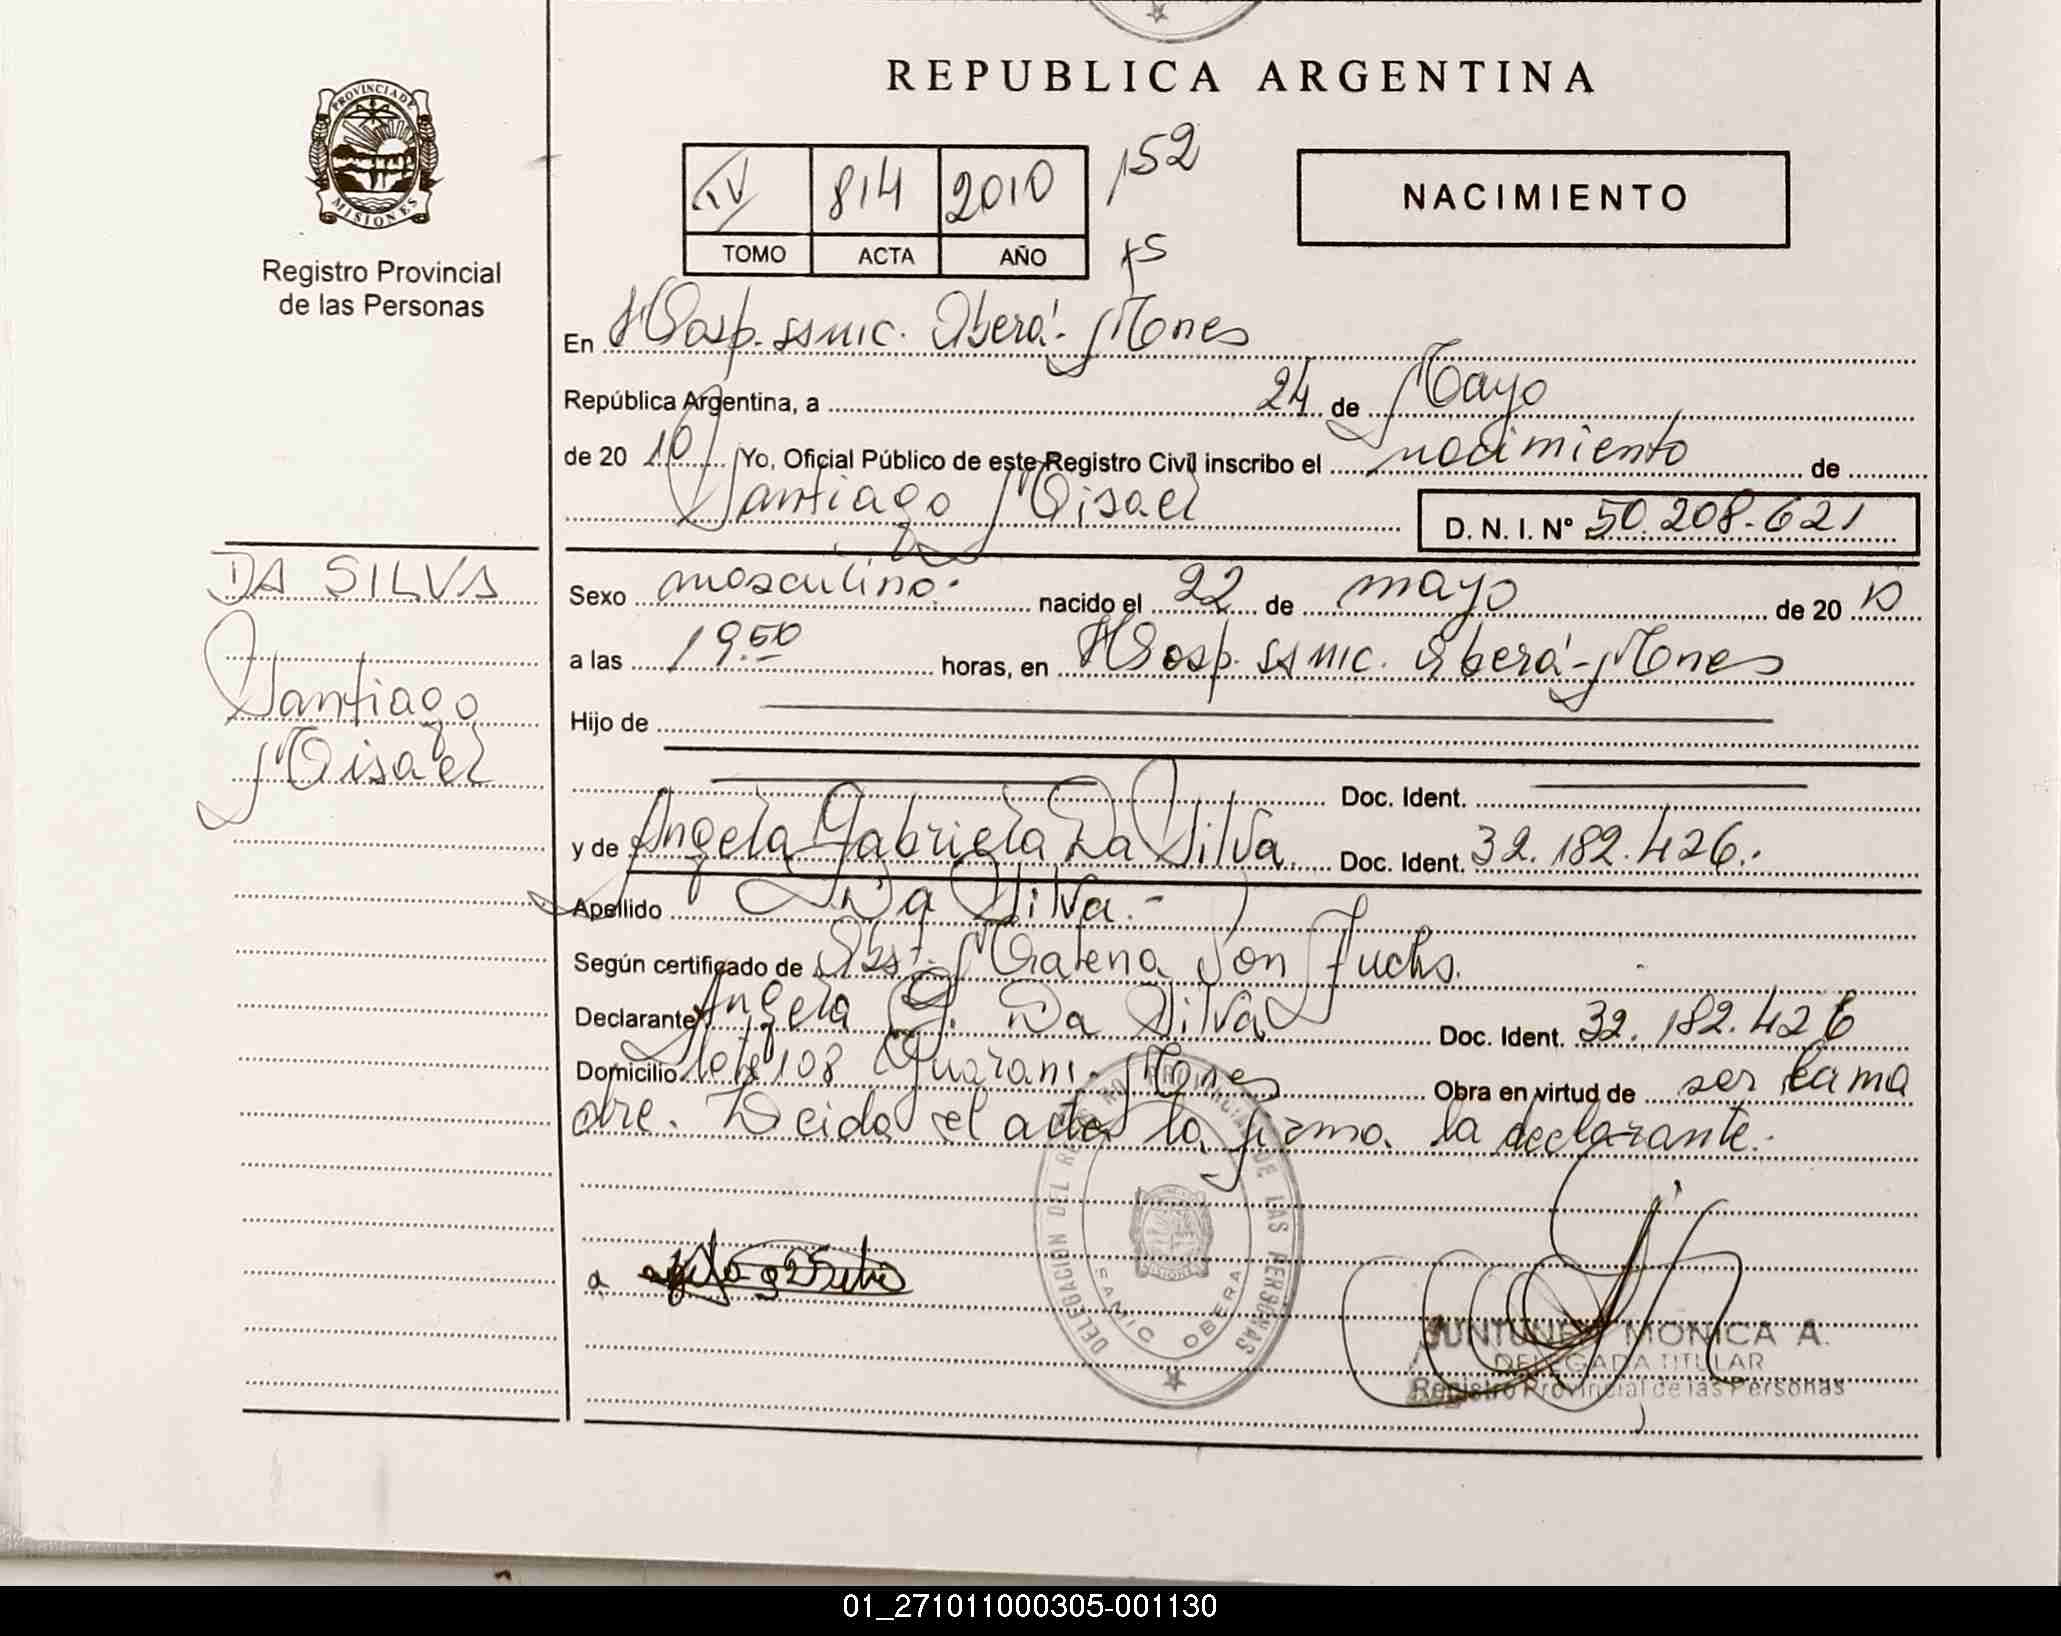 REPUBLICA ARGENTINA
PROVINCIA DE MISIONES
Registro Provincial
de las Personas
NACIMIENTO
IV 814 2010
TOMO ACTA AÑO
152
En Hosp. SSMIC. Oberá-Mones
República Argentina, a 24 de Mayo
de 20 10 Yo, Oficial Público de este Registro Civil inscribo el nacimiento de
Santiago Misael D. N. I. Nº 50.208.621
DA SILVA
Santiago
Misael
Sexo masculino. nacido el 22 de mayo de 20 10
a las 19.50 horas, en Hosp. SSMIC. Oberá-Mones
Hijo de
Doc. Ident.
y de Angela Gabriela Da Silva Doc. Ident. 32.182.426.-
Apellido Da Silva.-
Según certificado de Obst. Malena Von Fuchs.
Declarante Angela G. Da Silva Doc. Ident. 32.182.426
Domicilio 108 Guarani-Mones Obra en virtud de ser la ma
dre. Leida el acta la firma la declarante.-
DELEGACION DEL REGISTRO PROVINCIAL DE LAS PERSONAS
SAMIC OBERA
MONICA A.
DELEGADA TITULAR
Registro Provincial de las Personas
01_271011000305-001130